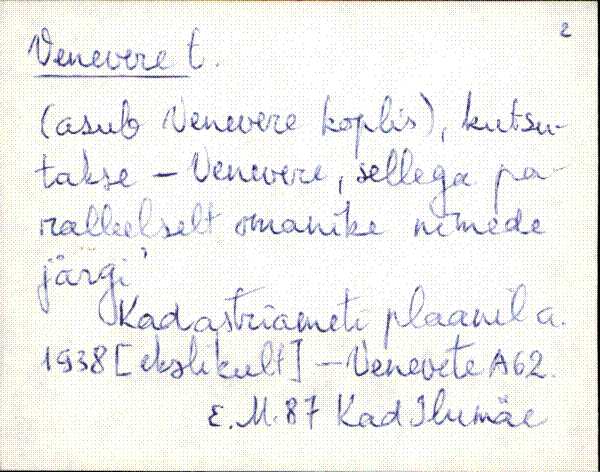 2
Venevere t.
(asub Venevere koplis), kutsu-
takse – Venevere, sellega pa-
ralleelselt omanike nimede
järgi
Kadastriameti plaanil a.
1938 [ekslikult] – Venevete A62.
E.M. 87 Kad Ilumäe